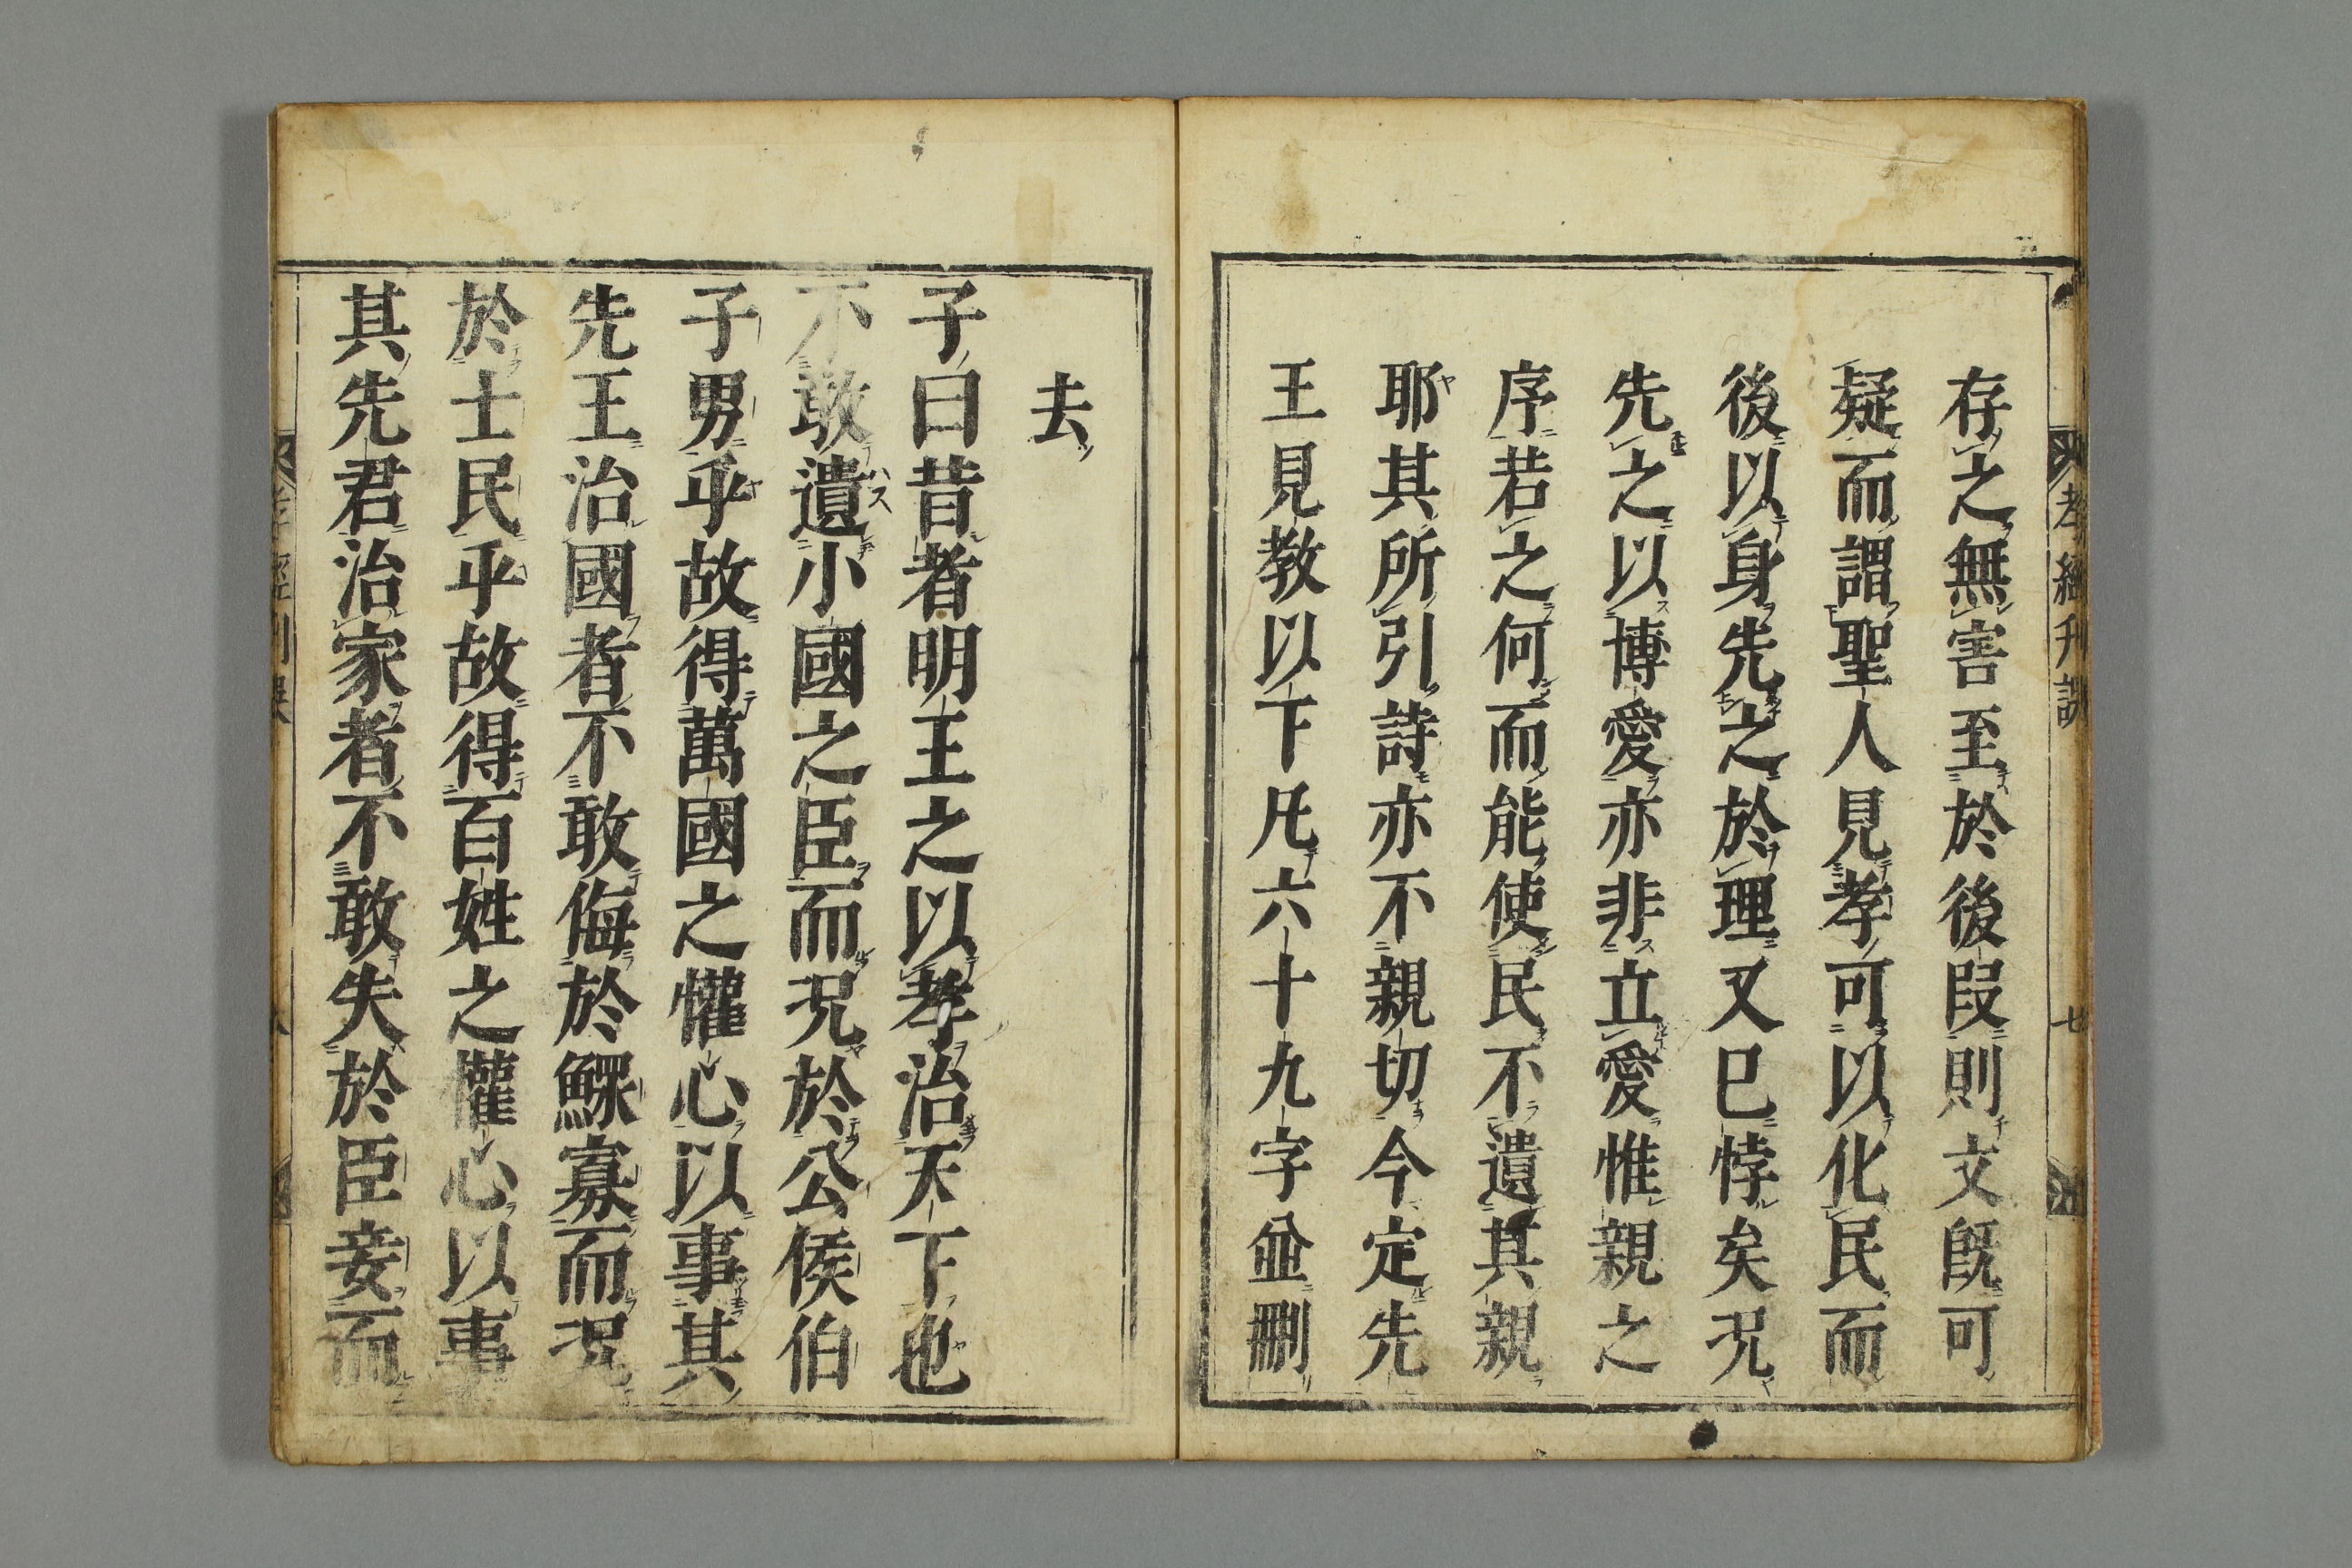 存之無害至於後段則文既可
疑而謂聖人見孝可以化民而
後以身先之於理又已悖矣况
先之以博愛亦非立愛惟親之
序若之何而能使民不遺其親
耶其所引詩亦不親切今定先
王見教以下凡六十九字並刪
去
子曰昔者明王之以孝治天下也
不敢遺小國之臣而况於公侯伯
子男乎故得萬國之懽心以事其
先王治國者不敢侮於鰥寡而况
於士民乎故得百姓之懽心以事
其先君治家者不敢失於臣妾而